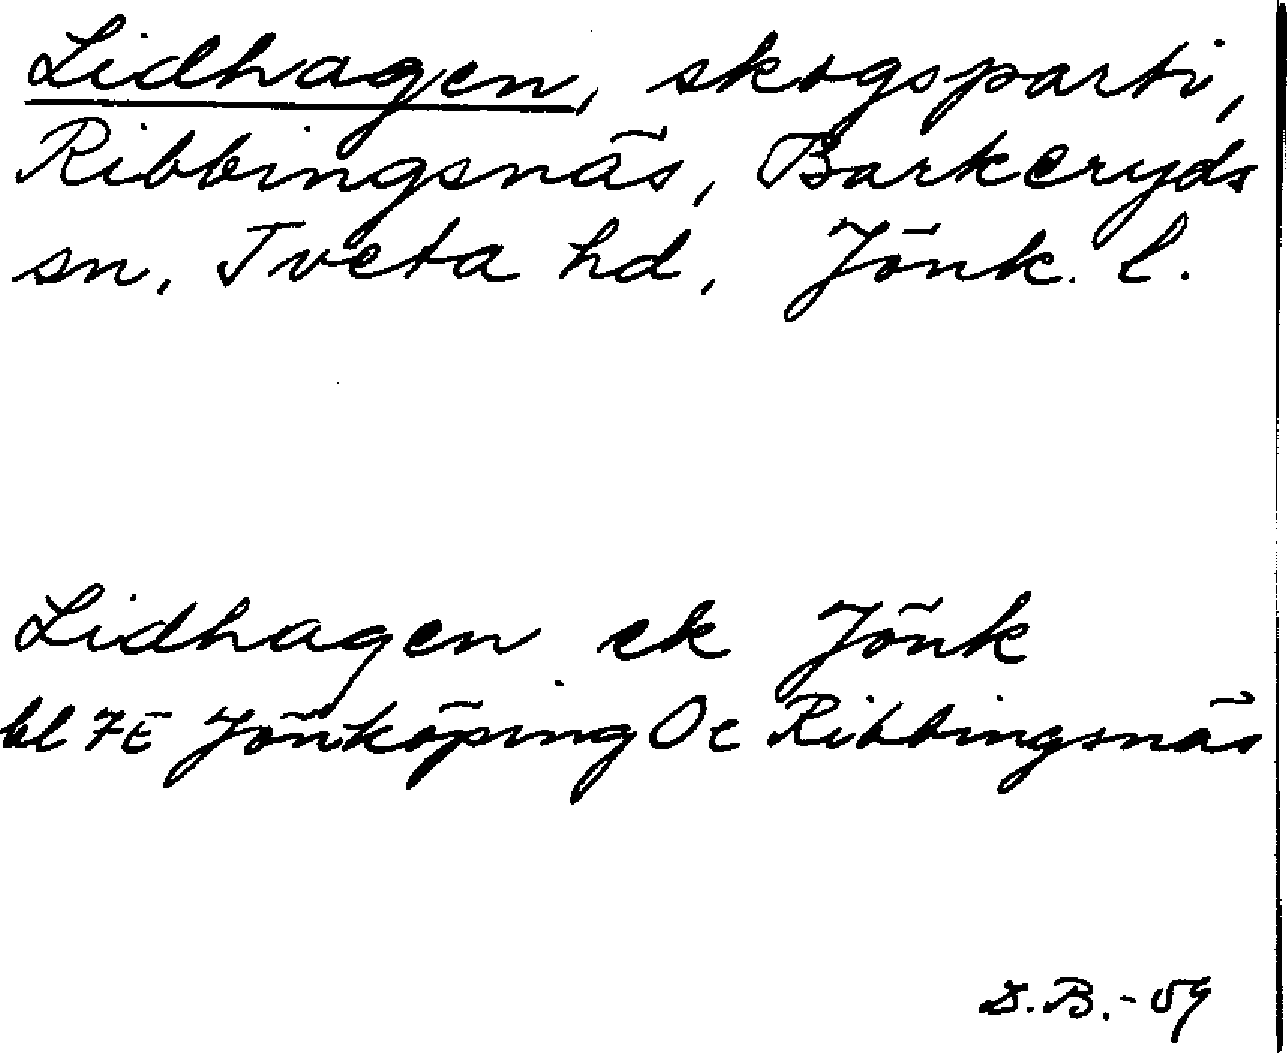 Lidhagen, skogsparti,
Ribbingsnäs, Barkeryds
sn, Tveta hd, Jönk. l.
Lidhagen ek Jönk
bl 7E Jönköping Oc Ribbingsnäs
D.B.-59